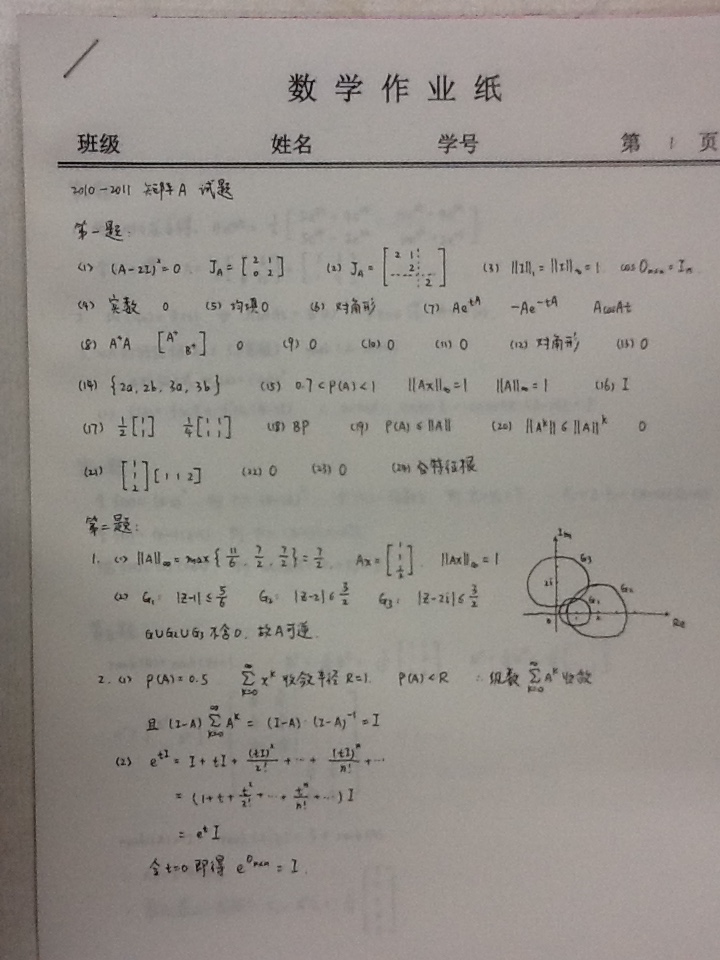 数学作业纸
班级 姓名 学号 第 1 页
2010-2011 矩阵A 试题
第一题:
(1) (A-2I)²=0 J_A=[2 1; 0 2] (2) J_A=[2 1; 2; 2] (3) ||I||₁=||I||∞=1. cos 0_{n×n}=I_n.
(4) 实数 0 (5) 均填0 (6) 对角形 (7) Ae^{tA} -Ae^{-tA} AcosAt
(8) A⁺A [A⁺ B⁺] 0 (9) 0 (10) 0 (11) 0 (12) 对角形 (13) 0
(14) {2a, 2b, 3a, 3b} (15) 0.7<ρ(A)<1 ||Ax||∞=1 ||A||∞=1 (16) I
(17) ½[1; 1] ¼[1 1; 1 1] (18) BP (19) ρ(A)≤||A|| (20) ||A^k||≤||A||^k 0
(21) [1; 1; 2][1 1 2] (22) 0 (23) 0 (24) 特征根
第二题:
1. (1) ||A||∞=max{11/6, 7/2, 7/2}=7/2 Ax=[1; 1; ] ||x||∞=1
(2) G₁: |z-1|≤5/6 G₂: |z-2|≤3/2 G₃: |z-2i|≤3/2
G₁∪G₂∪G₃ 不含0, 故A可逆.
Im G₃ 2i G₁ G₂ 0 Re
2. (1) ρ(A)=0.5 ∑_{k=0}^∞ x^k 收敛半径 R=1. ρ(A)<R ∴级数 ∑_{k=0}^∞ A^k 收敛
且 (I-A)∑_{k=0}^∞ A^k = (I-A)·(I-A)^{-1} = I
(2) e^{tI} = I+tI+(tI)²/2!+⋯+(tI)^n/n!+⋯
= (1+t+t²/2!+⋯+t^n/n!+⋯)I
= e^t I
令t=0 即得 e^{0_{n×n}} = I.